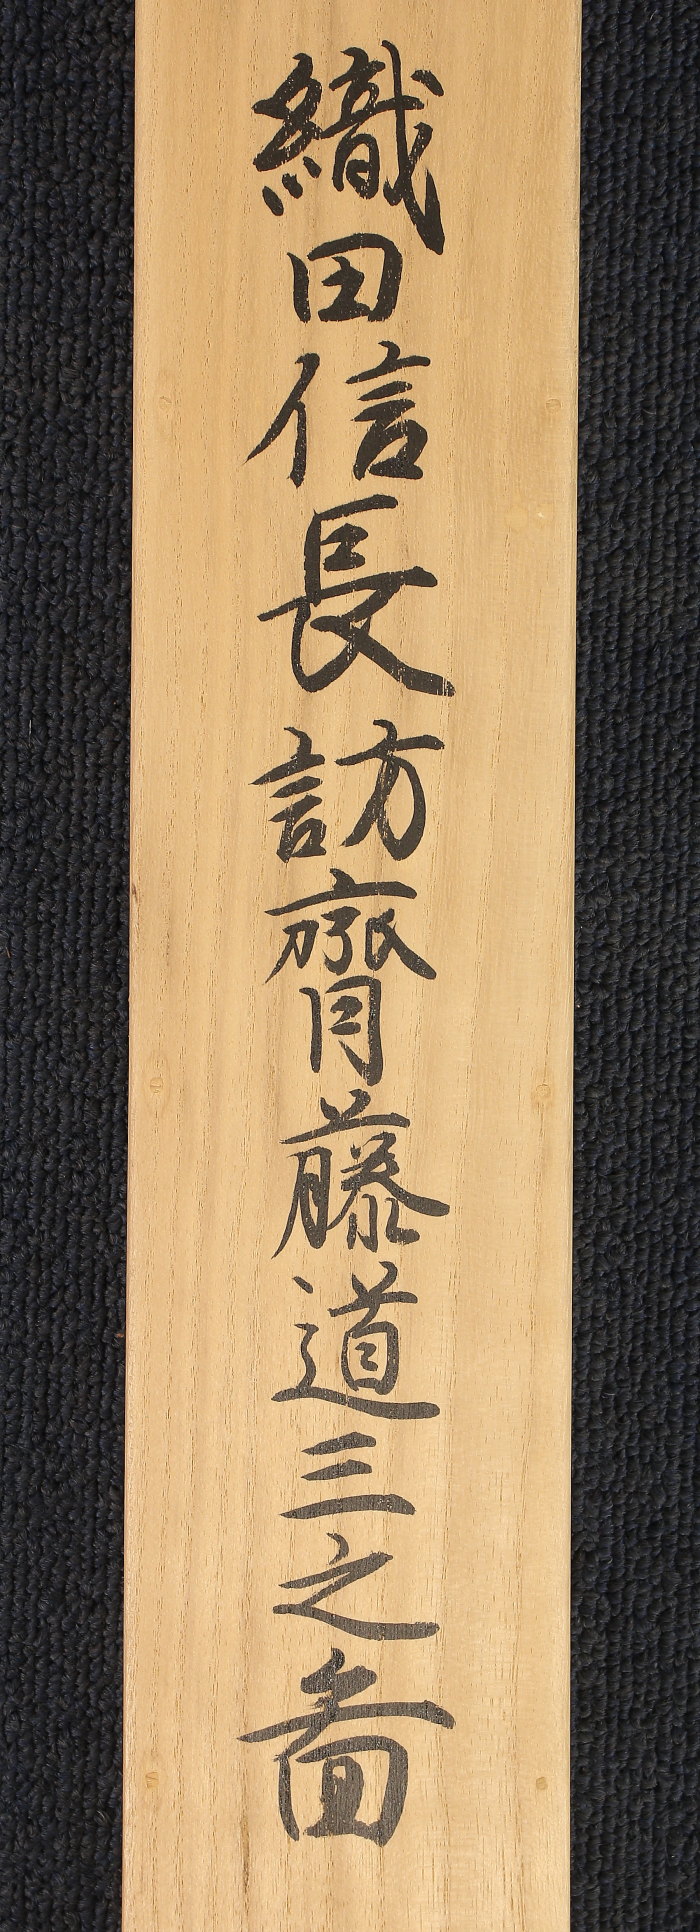 織田信長訪齊藤道三之啚